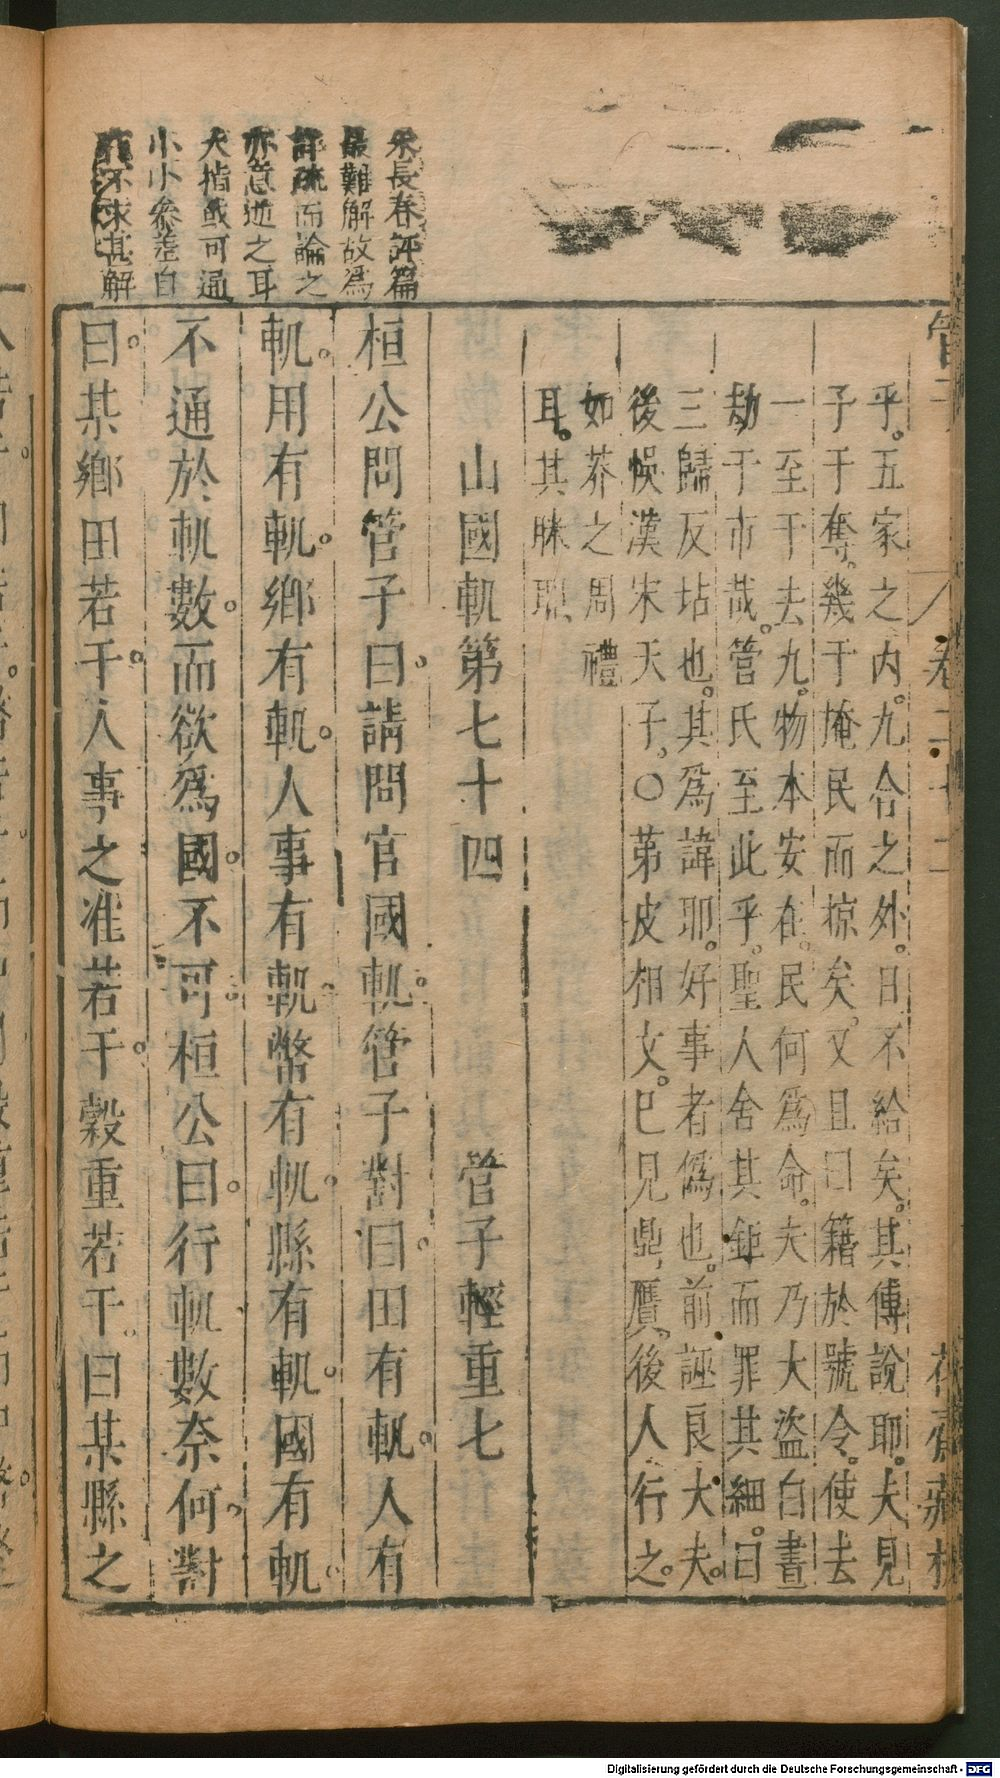 管子
卷二十二
花齋藏板
乎。五家之內。九合之外。日不給矣。其傳說耶。夫見
子于奪。幾于掩民而掠矣。又且曰籍於號令。使去
一至于去九。物本安在。民何爲命。夫乃大盜白晝
劫于市哉。管氏至此乎。聖人舍其鉅而罪其細。曰
三歸反坫也。其爲諱耶。好事者僞也。前誣良大夫。
後悞漢宋天子。〇第皮相文。已見鼎贗。後人行之。
如莽之周禮
耳。其眯
山國軌第七十四　管子輕重七
桓公問管子曰。請問官國軌。管子對曰。田有軌。人有
軌。用有軌。鄉有軌。人事有軌。幣有軌。縣有軌。國有軌。
不通於軌數。而欲爲國。不可。桓公曰。行軌數奈何。對
曰。某鄉田若干。人事之准若干。穀重若干。曰某縣之
朱長春評篇
最難解故爲
詳疏而論之
亦意逆之耳
大指或可通
小小參差自
不求甚解
Digitalisierung gefördert durch die Deutsche Forschungsgemeinschaft - DFG